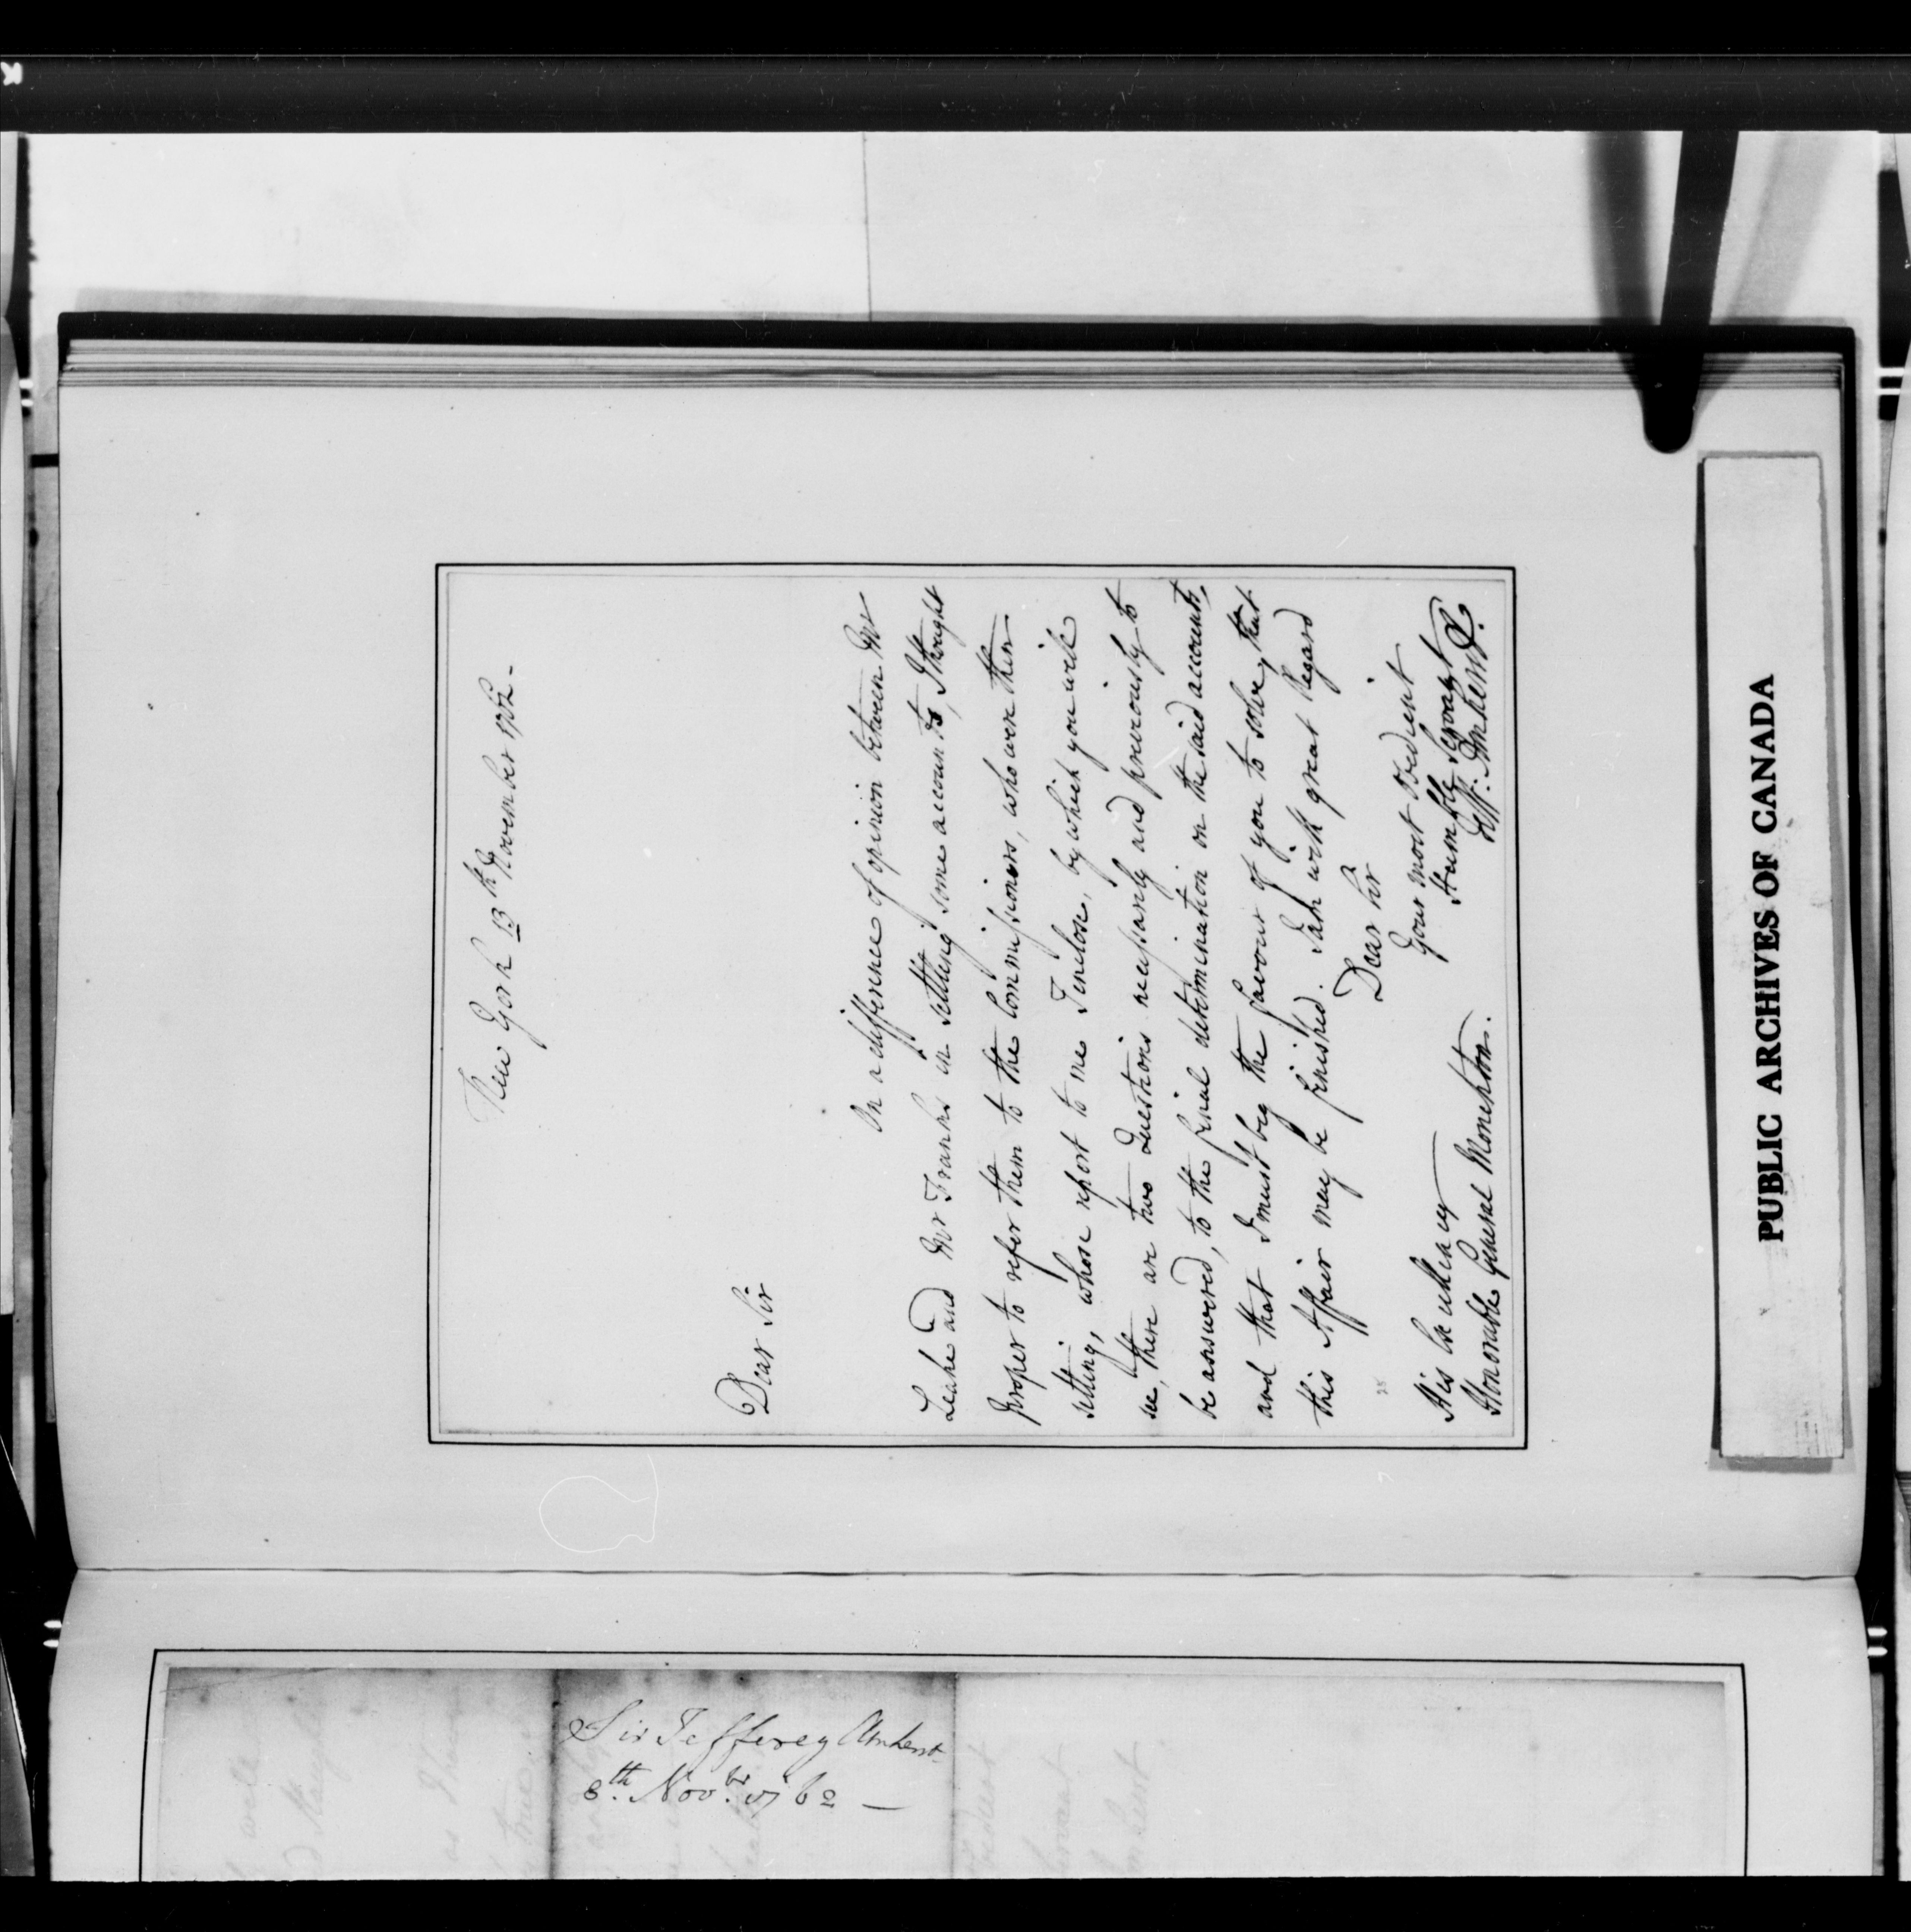 New York 13th November 1762-
Dear Sir
On a difference of opinion between Mr
Leake and Mr Franks in settling some accounts, I thought
proper to refer them to the Commissioners, who were then
sitting, whose report to me I enclose, by which you will
see, there are two Questions necessarily and previously to
be answered, to the final determination on the said accounts,
and that I must beg the favour of you to solve, that
this Affair may be finished. I am with great Regard
Dear Sir
Your most Obedient
Humble Servant
Jeff: Amherst.
His Excellency
Honorable General Monckton.
PUBLIC ARCHIVES OF CANADA
Sir Jefferey Amherst
8th. Novbr. 1762 —